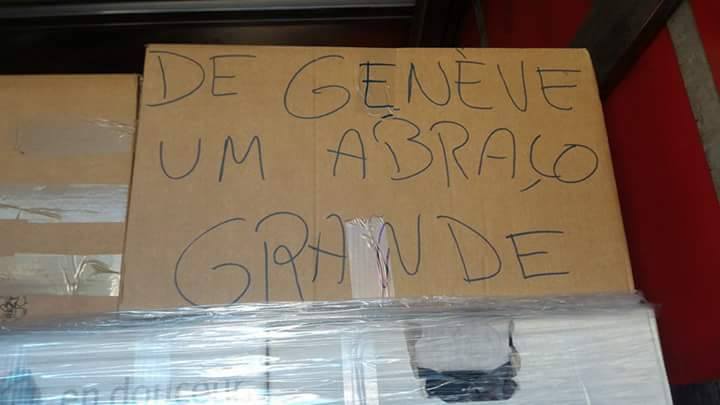 DE GENÈVE
UM ABRAÇO
GRANDE
en douceur